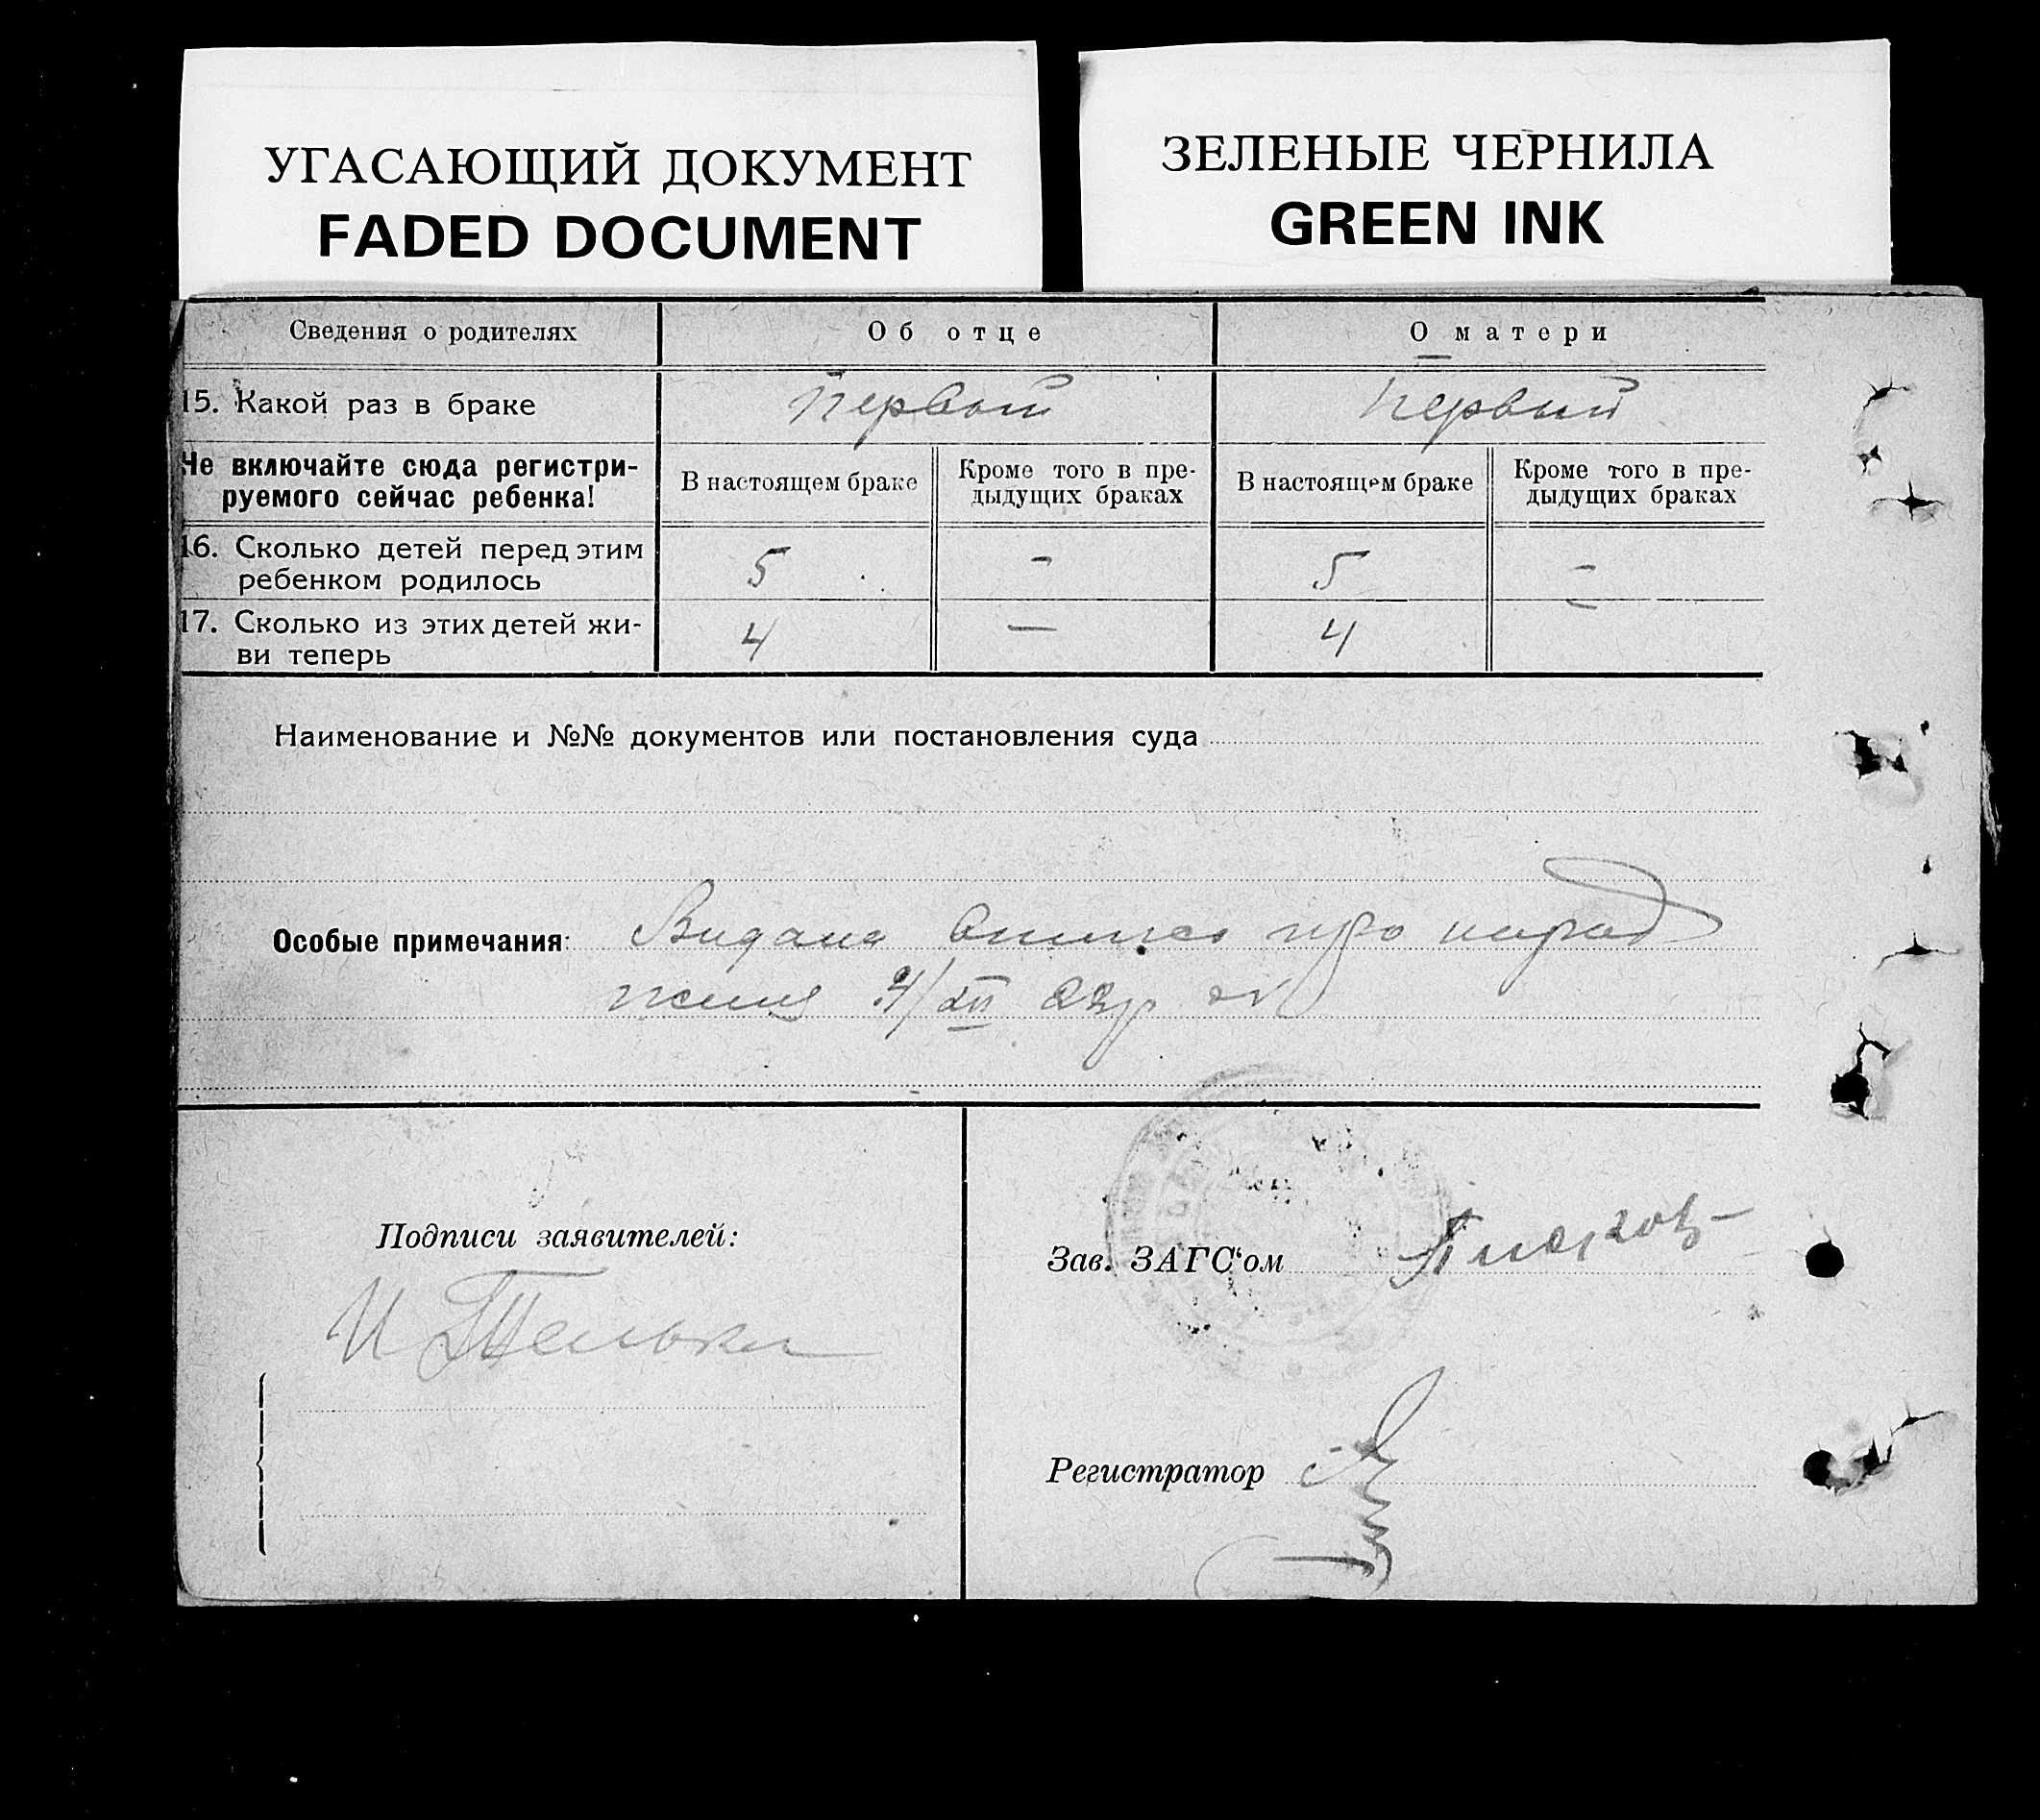 УГАСАЮЩИЙ ДОКУМЕНТ
FADED DOCUMENT
ЗЕЛЕНЫЕ ЧЕРНИЛА
GREEN INK
Сведения о родителях Об отце О матери
15. Какой раз в браке первый первый
Не включайте сюда регистри-
руемого сейчас ребенка!
В настоящем браке
Кроме того в пре-
дыдущих браках
В настоящем браке
Кроме того в пре-
дыдущих браках
16. Сколько детей перед этим
ребенком родилось
5 - 5 -
17. Сколько из этих детей жи-
ви теперь
4 — 4 -
Наименование и №№ документов или постановления суда
Особые примечания: Видана про народ
ження /XII
Подписи заявителей:
И
Зав. ЗАГС‘ом
Регистратор